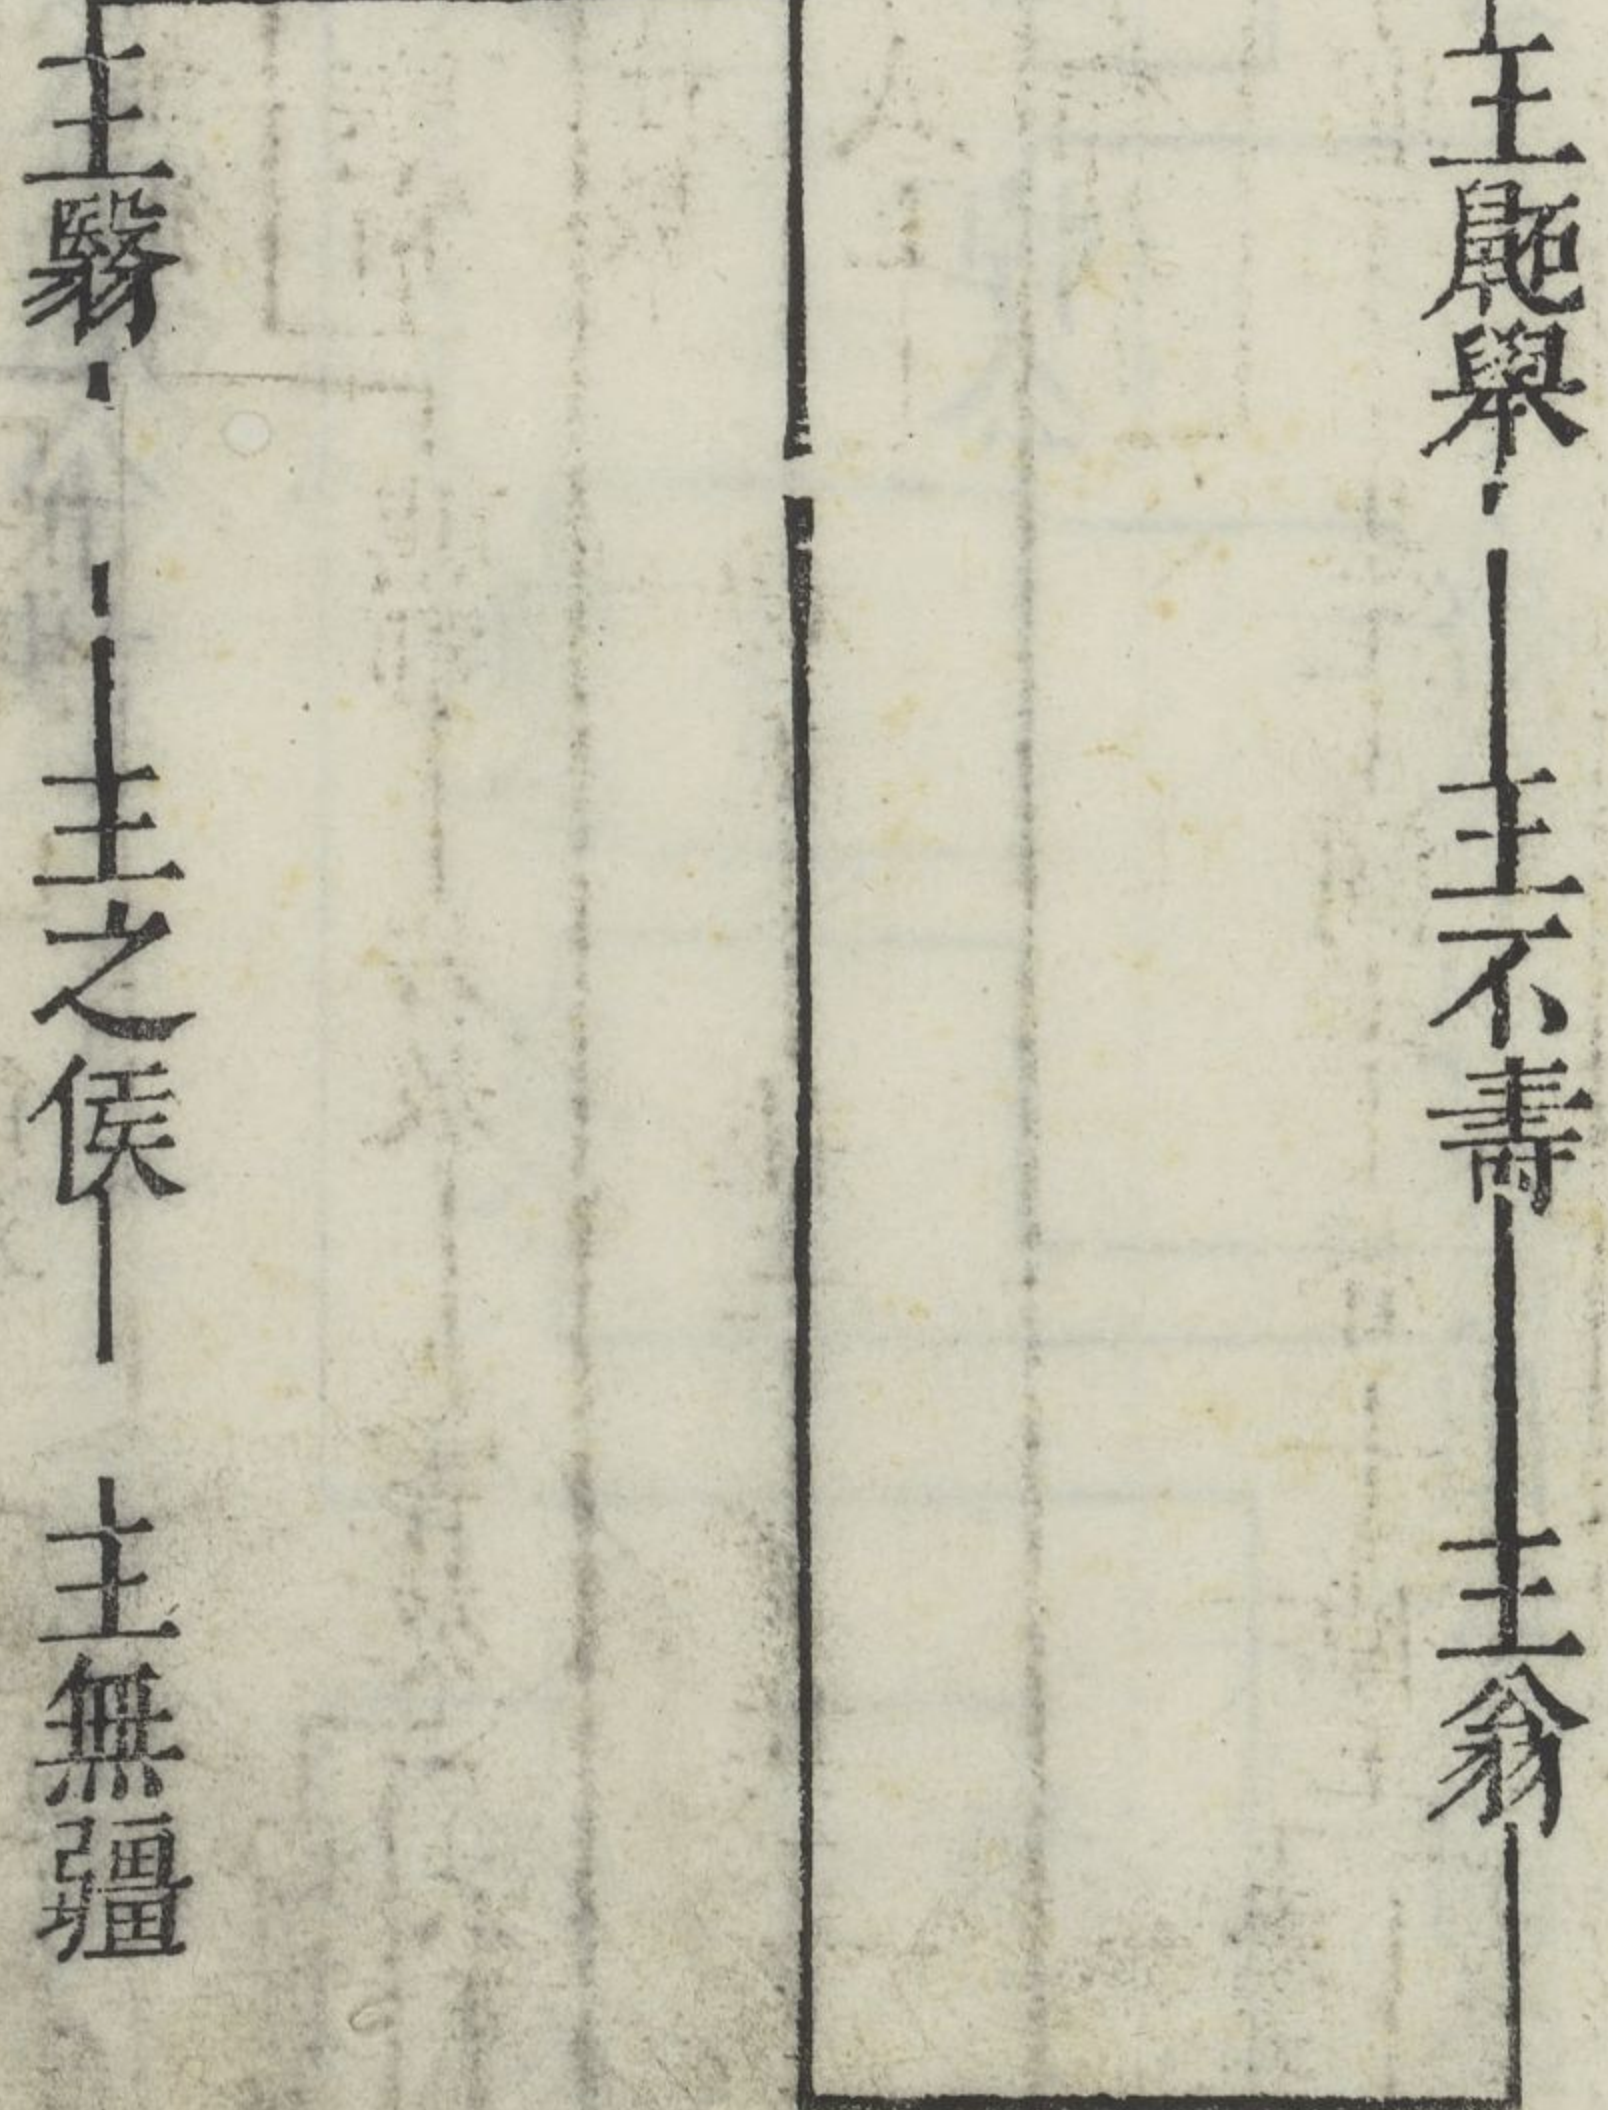 王鼫舉
王不壽
王翁
王翳
王之侯
王無疆